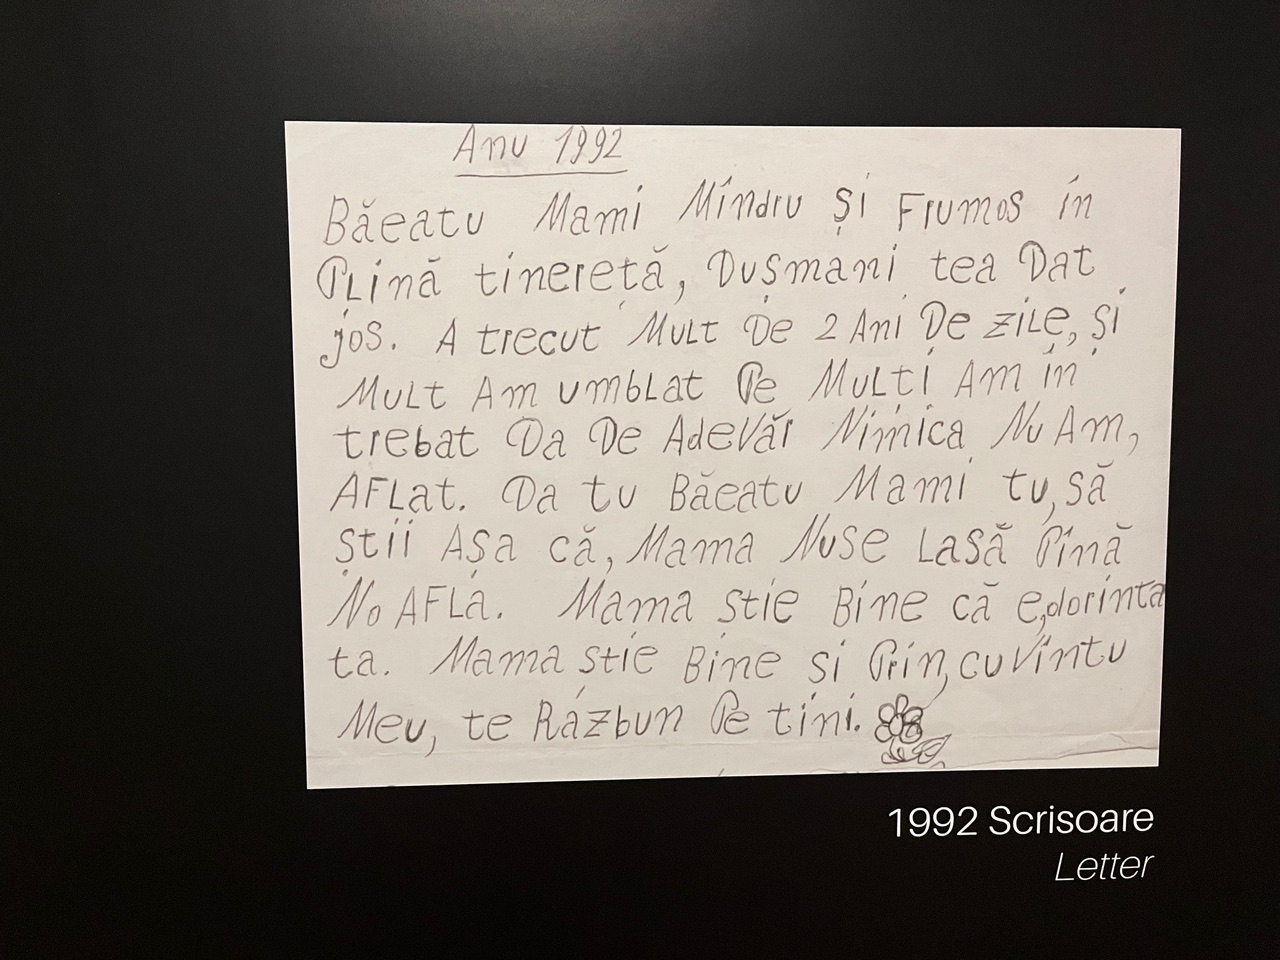 Anu 1992
Băeatu Mami Mîndru și Frumos în
Plină tinerețã, Dușmani tea Dat
jos. A trecut Mult De 2 Ani De zile, și
Mult Am umblat Pe Mulți Am în
trebat Da De Adevăr Nimica Nu Am,
AFLat. Da tu Băeatu Mami tu, să
știi Așa că, Mama Nuse Lasă Pînă
No AFLa. Mama stie Bine că e, dorința
ta. Mama stie Bine si Prin, cuvîntu
Meu, te Răzbun Pe tini.
1992 Scrisoare
Letter